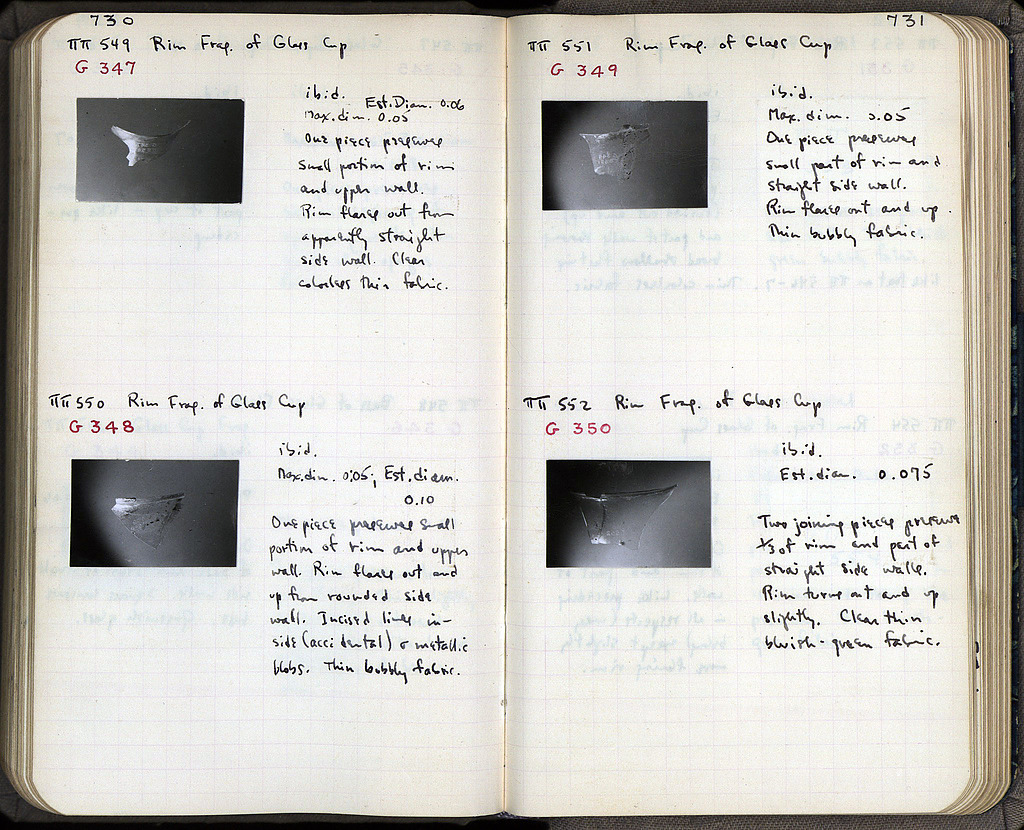 730
ΠΠ 549 Rim Frag. of Glass Cup
G 347
ibid.
Est. Diam. 0.06
Max. dim. 0.05
One piece preserves
small portion of rim
and upper wall.
Rim flares out from
apparently straight
side wall. Clear
colorless thin fabric.
ΠΠ 550 Rim Frag. of Glass Cup
G 348
ibid.
Max. dim. 0.05; Est. diam.
0.10
One piece preserves small
portion of rim and upper
wall. Rim flares out and
up from rounded side
wall. Incised lines in-
side (accidental) & metallic
blobs. Thin bubbly fabric.
731
ΠΠ 551 Rim Frag. of Glass Cup
G 349
ibid.
Max. dim. 0.05
One piece preserves
small part of rim and
straight side wall.
Rim flares out and up.
Thin bubbly fabric.
ΠΠ 552 Rim Frag. of Glass Cup
G 350
ibid.
Est. diam. 0.075
Two joining pieces preserve
1/3 of rim and part of
straight side walls.
Rim turns out and up
slightly. Clear thin
bluish-green fabric.